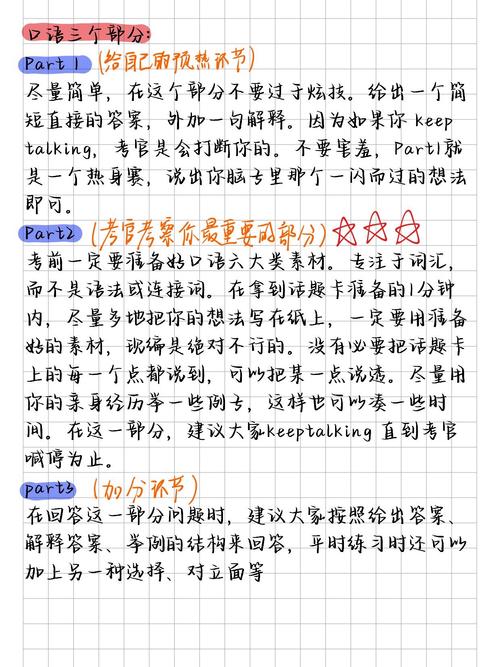 口语三个部分:
Part 1 (给自己的预热环节)
尽量简单，在这个部分不要过于炫技。给出一个简
短直接的答案，外加一句解释。因为如果你 keep
talking，考官是会打断你的。不要害羞，Part1就
是一个热身赛，说出你脑子里那个一闪而过的想法
即可。
Part2 (考官考察你最重要的部分)
考前一定要准备好口语六大类素材。专注于词汇，
而不是语法或连接词。在拿到话题卡准备的1分钟
内，尽量多地把你的想法写在纸上，一定要用准备
好的素材，现编是绝对不行的。没有必要把话题卡
上的每一个点都说到，可以把某一点说透。尽量用
你的亲身经历举一些例子，这样也可以凑一些时
间。在这一部分，建议大家keeptalking 直到考官
喊停为止。
part3 (加分环节)
在回答这一部分问题时，建议大家按照给出答案、
解释答案、举例的结构来回答，平时练习时还可以
加上另一种选择、对立面等